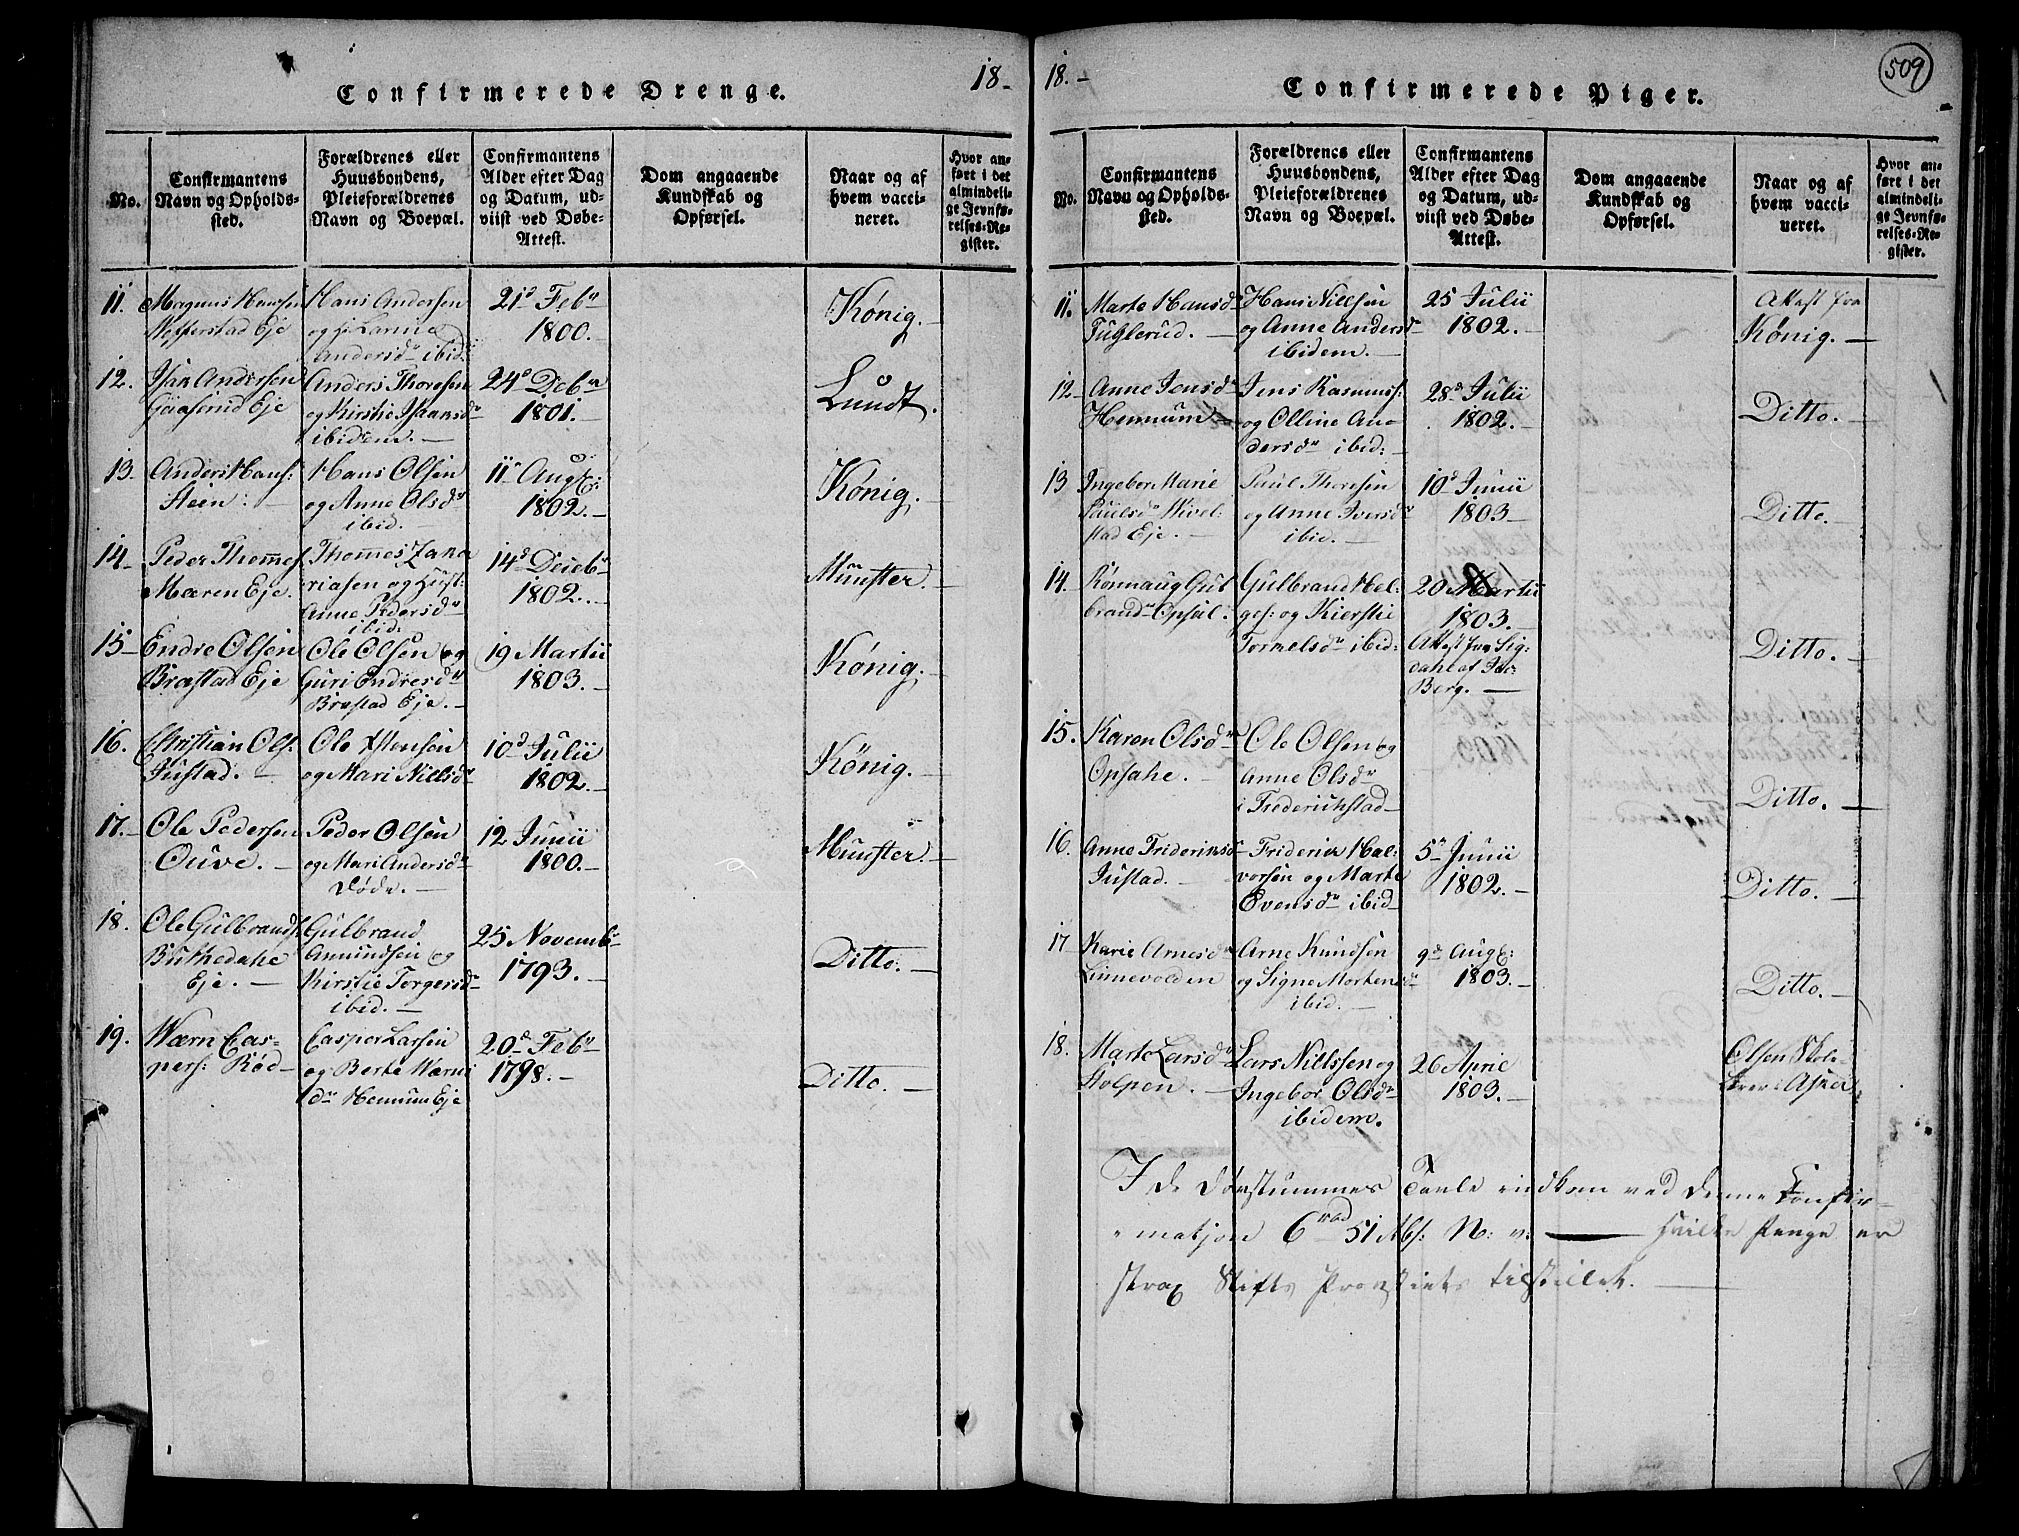 18 -
Confirmerede Drenge.
No.
Confirmantens
Navn og Opholds-
sted.
Forældrenes eller
Huusbondens,
Pleieforældrenes
Navn og Boepæl.
Confirmantens
Alder efter Dag
og Datum, ud-
viist ved Døbe-
Attest.
Dom angaaende
Kundskab og
Opførsel.
Naar og af
hvem vacci-
neret.
Hvor an-
ført i det
almindeli-
ge Jevnfø-
relses-Re-
gister.
11.
Magnus Hansen
Eje
Hans Andersen
og
Andersdr ibid:
21d Febr
1800. -
König. -
12.
Andersen
Eje
Anders Thoresen
og Kirstie
ibidem. -
24d Debr
1801. -
Lundt.
13
Anders Hans:
Stein: -
Hans Olsen
og Anne Olsdr
ibid. -
11te Aug:
1802. -
König. -
14
Peder Thommes
Mæren Eje.
Thommes Zana
riasen og Hust:
Anne Pedersdr
ibid:
14d Decbr
1802. -
Münster. -
15
Endre Olsen
Brastad Eje
Ole Olsen og
Guri Endresdr
Brastad Eje. -
19 Martii
1803. -
König. -
16.
Christian Ols:
Justad. -
Ole Ystensen
og Mari Nielsdr
10d Julii
1802. -
König. -
17. -
Ole Pedersen
Ouve. -
Peder Olsen
og Mari Andersdr
Døde. -
12 Junii
1800. -
Münster. -
18.
Ole Gulbrands:
Eje. -
Gulbrand
Amundsen og
Kirstie Torgersdr
ibid. -
25 Novembr
1793. -
Ditto. -
19.
Wærn Cas-
pers: Rød
Casper Larsen
og Berte Wærns
dr Hennum Eje
20d Febr
1798. -
Ditto. -
18. -
Confirmerede Piger.
509
No.
Confirmantens
Navn og Opholds-
sted.
Forældrenes eller
Huusbondens,
Pleieforældrenes
Navn og Boepæl.
Confirmantens
Alder efter Dag
og Datum, ud-
viist ved Døbe-
Attest.
Dom angaaende
Kundskab og
Opførsel.
Naar og af
hvem vacci-
neret.
Hvor an-
ført i det
almindeli-
ge Jevnfø-
relses-Re-
gister.
11.
Marte Hansdr
Fuglerud. -
Hans Nielsen
og Anne Andersdr
ibidem. -
25 Julii
1802. -
Attest fra
König. -
12
Anne Jensdr
Hennum -
Jens Rasmuss:
og Olline An-
dersdr ibid:
28d Julii
1802. -
Ditto. -
13
Ingebor Marie
Paulsdr Hivel-
stad Eje. -
Paul Thoresen
og Anne Iversdr
ibid. -
10d Junii
1803 -
Ditto. -
14.
Rönnaug Gul
brandsdr Opsal.
Gulbrand Hel-
ges: og Kierstie
Tormelsdr ibid:
20 Martii
1803. -
Attest fra Sig-
dahl af
Berg. -
Ditto. -
15.
Karen Olsdr
Opsahe. -
Ole Olsen og
Anne Olsdr
i Friderichstad
Ditto. -
16.
Anne Friderichsdr
Justad. -
Friderich Hal-
vorsen og Marte
Evensdr ibid
5te Junii
1802. -
Ditto. -
17
Karie Arnesdr
Linnevolden
Arne Knudsen
og Signe Mortensdr
ibid. -
9de Aug:
1803. -
Ditto. -
18.
Marte Larsdr
Stolpen. -
Lars Nielssen og
Ingebor Olsdr
ibidem.
26 April
1803. -
Olsen Skole-
lærer i Asker
I de Døvstummes Tavle indkom ved denne Confir-
matjon 6 51 N: v: - hvilke Penge er
strax Stifts Provstiets tilstillet. -